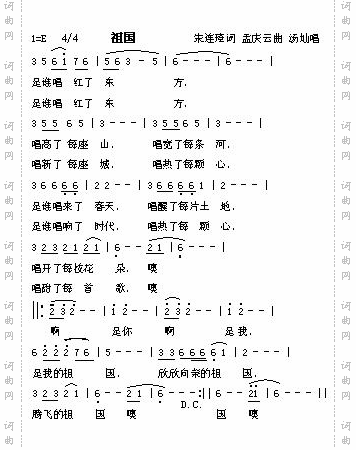 1=E 4/4 祖国 朱连璋词 孟庆云曲 汤灿唱
3 5 6 1 7 6 | 5 6 3 - 5 | 6 - - - | 6 - - - |
是谁唱 红了 东 方.
是谁唱 红了 东 方.
3 5 5 6 5 | 3 - - - | 3 5 5 6 5 | 3 - - - |
唱高了 每座 山. 唱宽了每条 河.
唱新了 每座 城. 唱热了每颗 心.
3 6 6 6 6 | 2 2 - - | 3 6 6 6 6 1 | 2 - - - |
是谁唱来了 春天. 唱醒了每片土 地.
是谁唱响了 时代. 唱热了每 颗 心.
3 2 3 2 1 2 1 | 6 - - 2 1 | 6 - - - |
唱开了每枝花 朵. 噢
唱甜了每 首 歌. 噢
||: 2 3 2 - - | 1 2 - - | 2 3 2 - - | 1 2 - - |
啊 是你 啊 是我.
6 2 2 2 7 6 | 5 - - - | 3 3 6 6 6 6 1 | 2 - - - |
是我的祖 国. 欣欣向荣的祖 国.
3 2 3 2 1 | 6 - - 2 1 | 6 - - - :|| 6 - - 2 1 | 6 - - - ||
D.C.
腾飞的祖 国 噢 国 噢
词曲网
词曲网
词曲网
词曲网
词曲网
词曲网